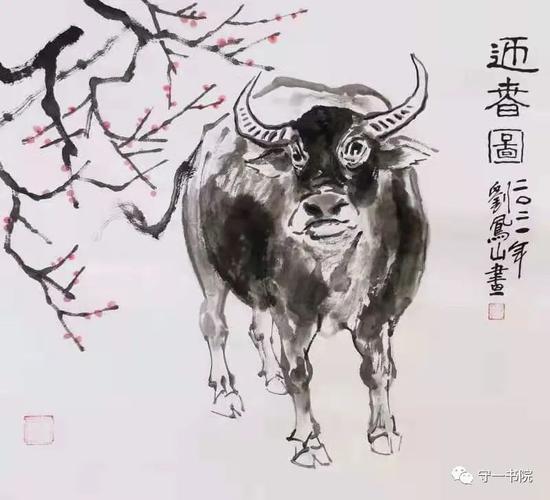 迎春圖
二〇二一年
劉鳳山畫
守一书院